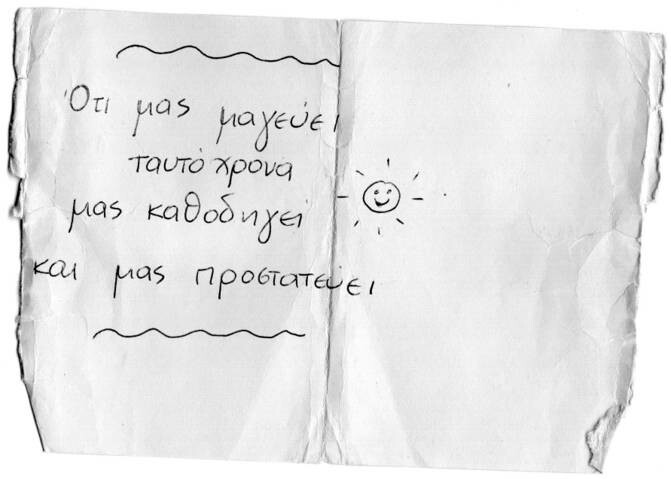 Ότι μας μαγεύει
ταυτόχρονα
μας καθοδηγεί
και μας προστατεύει